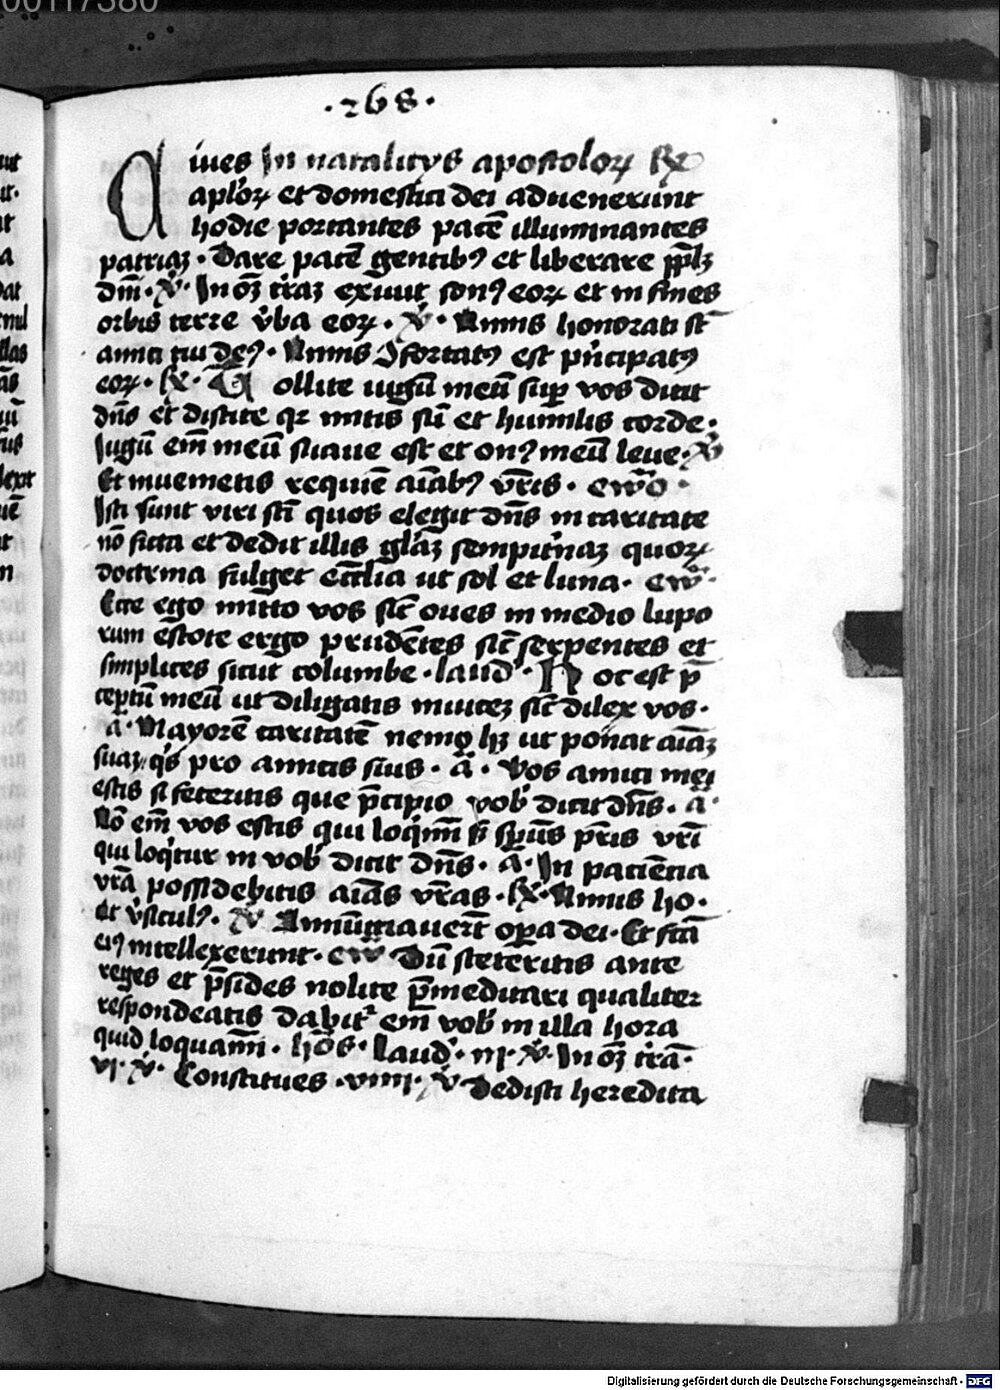 00117380
·268·
Ciues In natalitys apostoloꝝ ℟
aplꝝ et domestici dei aduenerunt
hodie portantes pacē illuminantes
patriaʒ · Dare pacē gentibꝰ et liberare pplʒ
dm̄ · ℣ · In oēʒ tr̄aʒ exiuit sonꝰ eoꝝ et in fines
orbis terre v̓ba eoꝝ · ℣ · Nimis honorati st̄
amici tui deꝰ · Nimis ꝯfortatꝰ est pn̓cipatꝰ
eoꝝ · ℟ · Tollite iugū meū sup vos dicit
dn̄s et discite qꝛ mitis sū et humilis corde ·
Iugū em̄ meū suaue est et onꝰ meū leue · ℣
Et inuenietis requiē aīabꝰ vr̄is · ewō ·
Isti sunt viri sc̄i quos elegit dn̄s in caritate
nō ficta et dedit illis glāʒ sempit̓naʒ quoꝝ
doctrina fulget ecc̄lia ut sol et luna · ew̄ ·
Ecce ego mitto vos sic̄ oues in medio lupo
rum estote ergo prudētes sic̄ serpentes et
simplices sicut columbe · laud̓ · Hoc est p̄
ceptū meū ut diligatis inuiceʒ sic̄ dilex vos ·
a̓ · Mayorē caritatē nemo hʒ ut ponat aīaʒ
suaʒ q̓s pro amicis suis · ā · Vos amici mei
estis si feceritis que p̄cipio vob̓ dicit dn̄s · a̓ ·
Nō em̄ vos estis qui loq̓mī sʒ sp̄us pr̄is vr̄i
qui loq̓tur in vob̓ dicit dn̄s · ā · In paciētia
vrā possidebitis aīas vr̄as · ℟ · Nimis ho ·
et v̓siculꝰ · ℣ Annūtiauert̄ opa dei · Et fc̄ā
eiꝰ intellexerunt · ew̄ · Dū steteritis ante
reges et p̄sides nolite p̄meditari qualiter
respondeatis dabit᷑ em̄ vob̓ in illa hora
quid loquamī · hōs · laud̓ · iii · ℣ · In oēʒ tr̄ā ·
vi · ℣ · Constitues · viiii · ℣ · Dedisti heredita
Digitalisierung gefördert durch die Deutsche Forschungsgemeinschaft · DFG